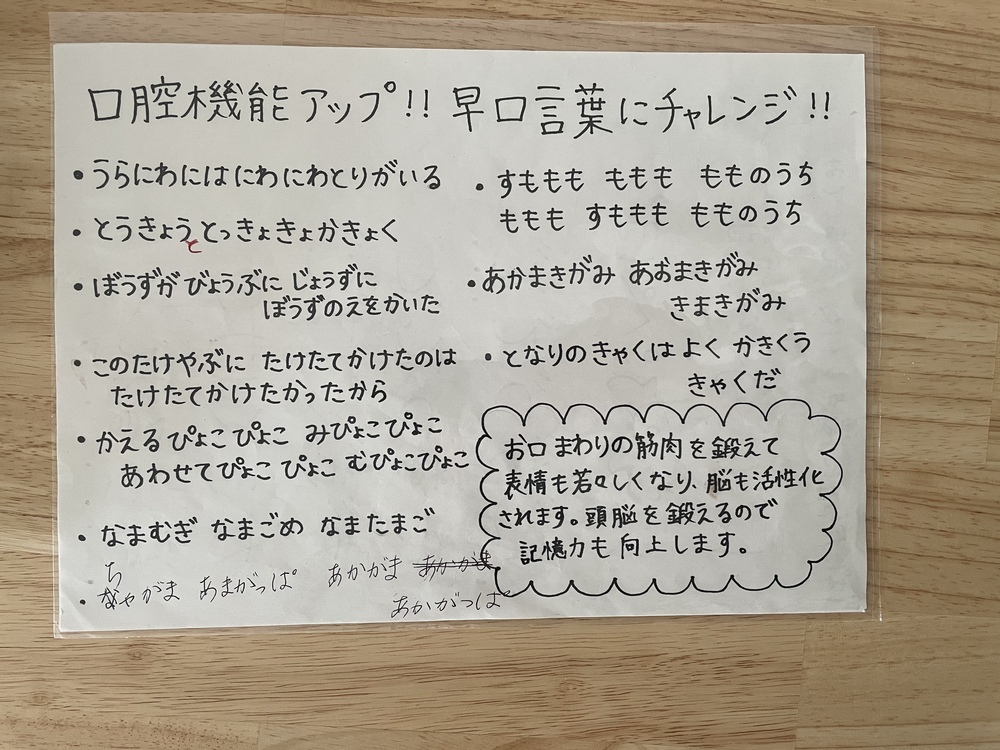 口腔機能アップ!! 早口言葉にチャレンジ!!
・うらにわにはにわにわとりがいる
・とうきょうとっきょきょかきょく
と
・ぼうずが びょうぶに じょうずに
ぼうずのえをかいた
・このたけやぶに たけたてかけたのは
たけたてかけたかったから
・かえるぴょこぴょこ みぴょこぴょこ
あわせてぴょこぴょこ むぴょこぴょこ
・なまむぎ なまごめ なまたまご
ち
・ゃがま あまがっぱ あかがま あかがま
あかがっぱ
・すももも ももも もものうち
ももも すももも もものうち
・あかまきがみ あおまきがみ
きまきがみ
・となりのきゃくは よく かきくう
きゃくだ
お口まわりの筋肉を鍛えて
表情も若々しくなり、脳も活性化
されます。頭脳を鍛えるので
記憶力も向上します。